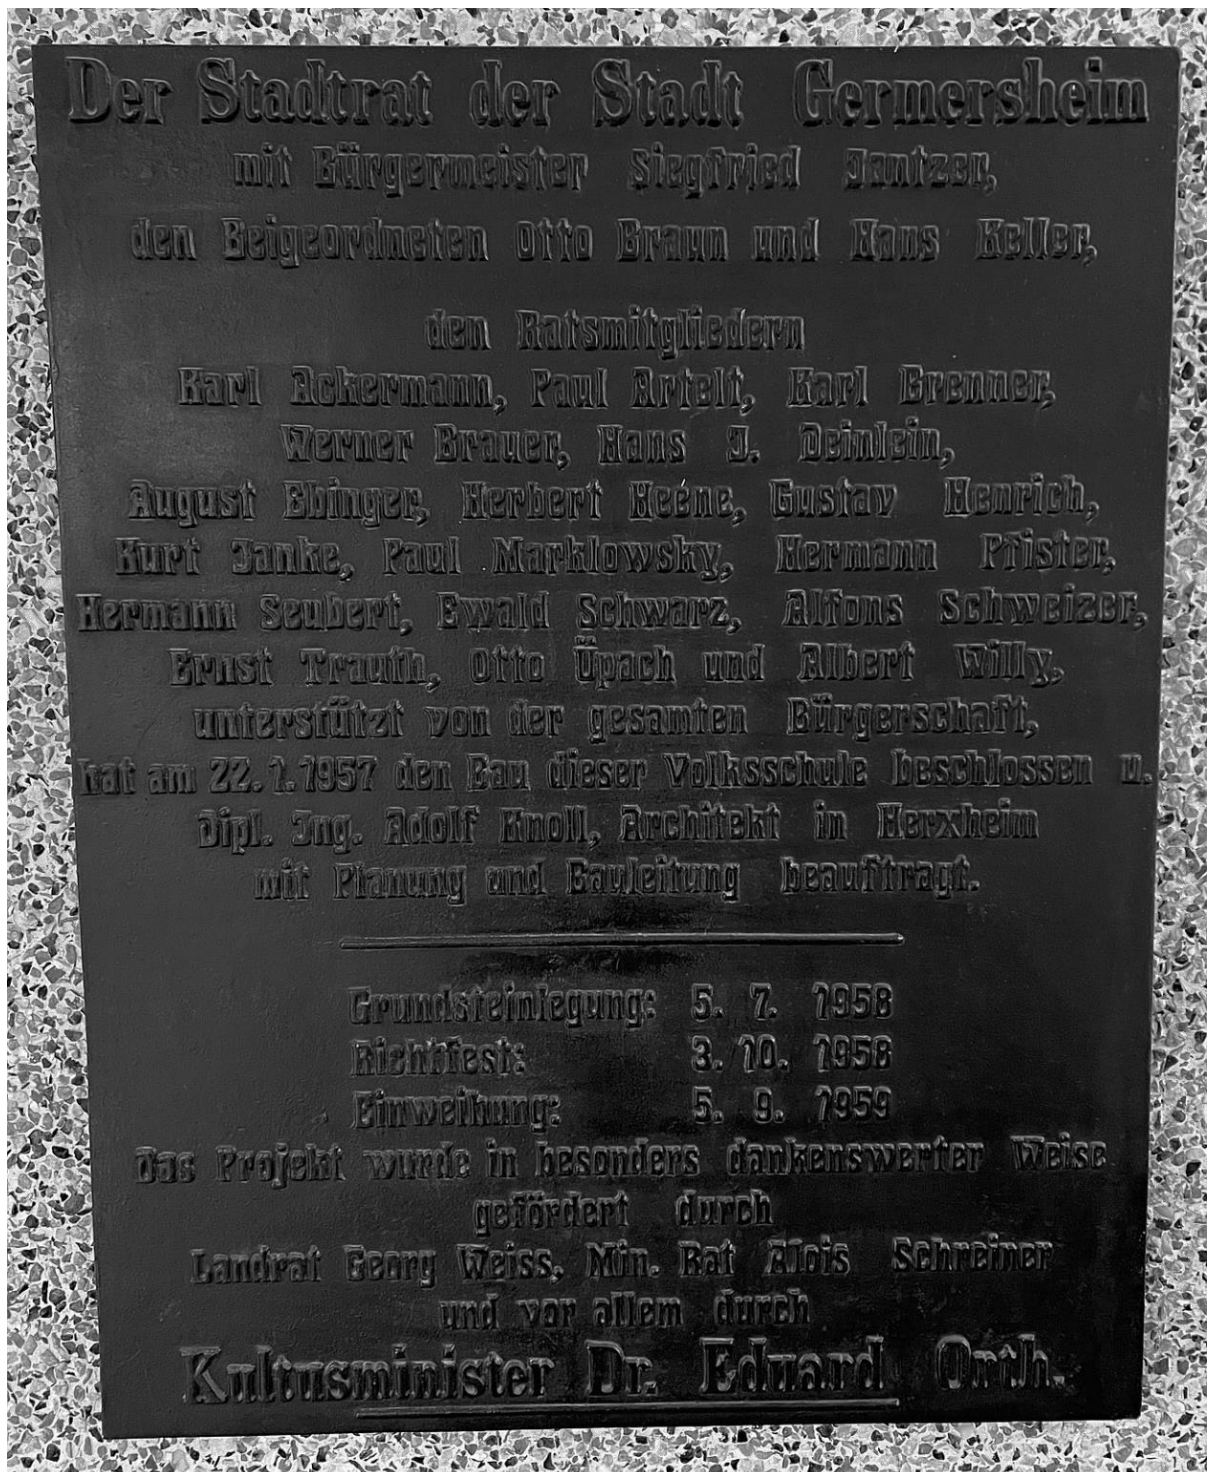 Der Stadtrat der Stadt Germersheim
mit Bürgermeister Siegfried Jantzer,
den Beigeordneten Otto Braun und Hans Keller,
den Ratsmitgliedern
Karl Ackermann, Paul Artelt, Karl Brenner,
Werner Brauer, Hans J. Deinlein,
August Ebinger, Herbert Heene, Gustav Henrich,
Kurt Janke, Paul Marklowsky, Hermann Pfister,
Hermann Seubert, Ewald Schwarz, Alfons Schweizer,
Ernst Trauth, Otto Üpach und Albert Willy,
unterstützt von der gesamten Bürgerschaft,
hat am 22. 1. 1957 den Bau dieser Volksschule beschlossen u.
Dipl. Jng. Adolf Knoll, Architekt in Herxheim
mit Planung und Bauleitung beauftragt.
Grundsteinlegung: 5. 7. 1958
Richtfest: 3. 10. 1958
Einweihung: 5. 9. 1959
Das Projekt wurde in besonders dankenswerter Weise
gefördert durch
Landrat Georg Weiss, Min. Rat Alois Schreiner
und vor allem durch
Kultusminister Dr. Eduard Orth.